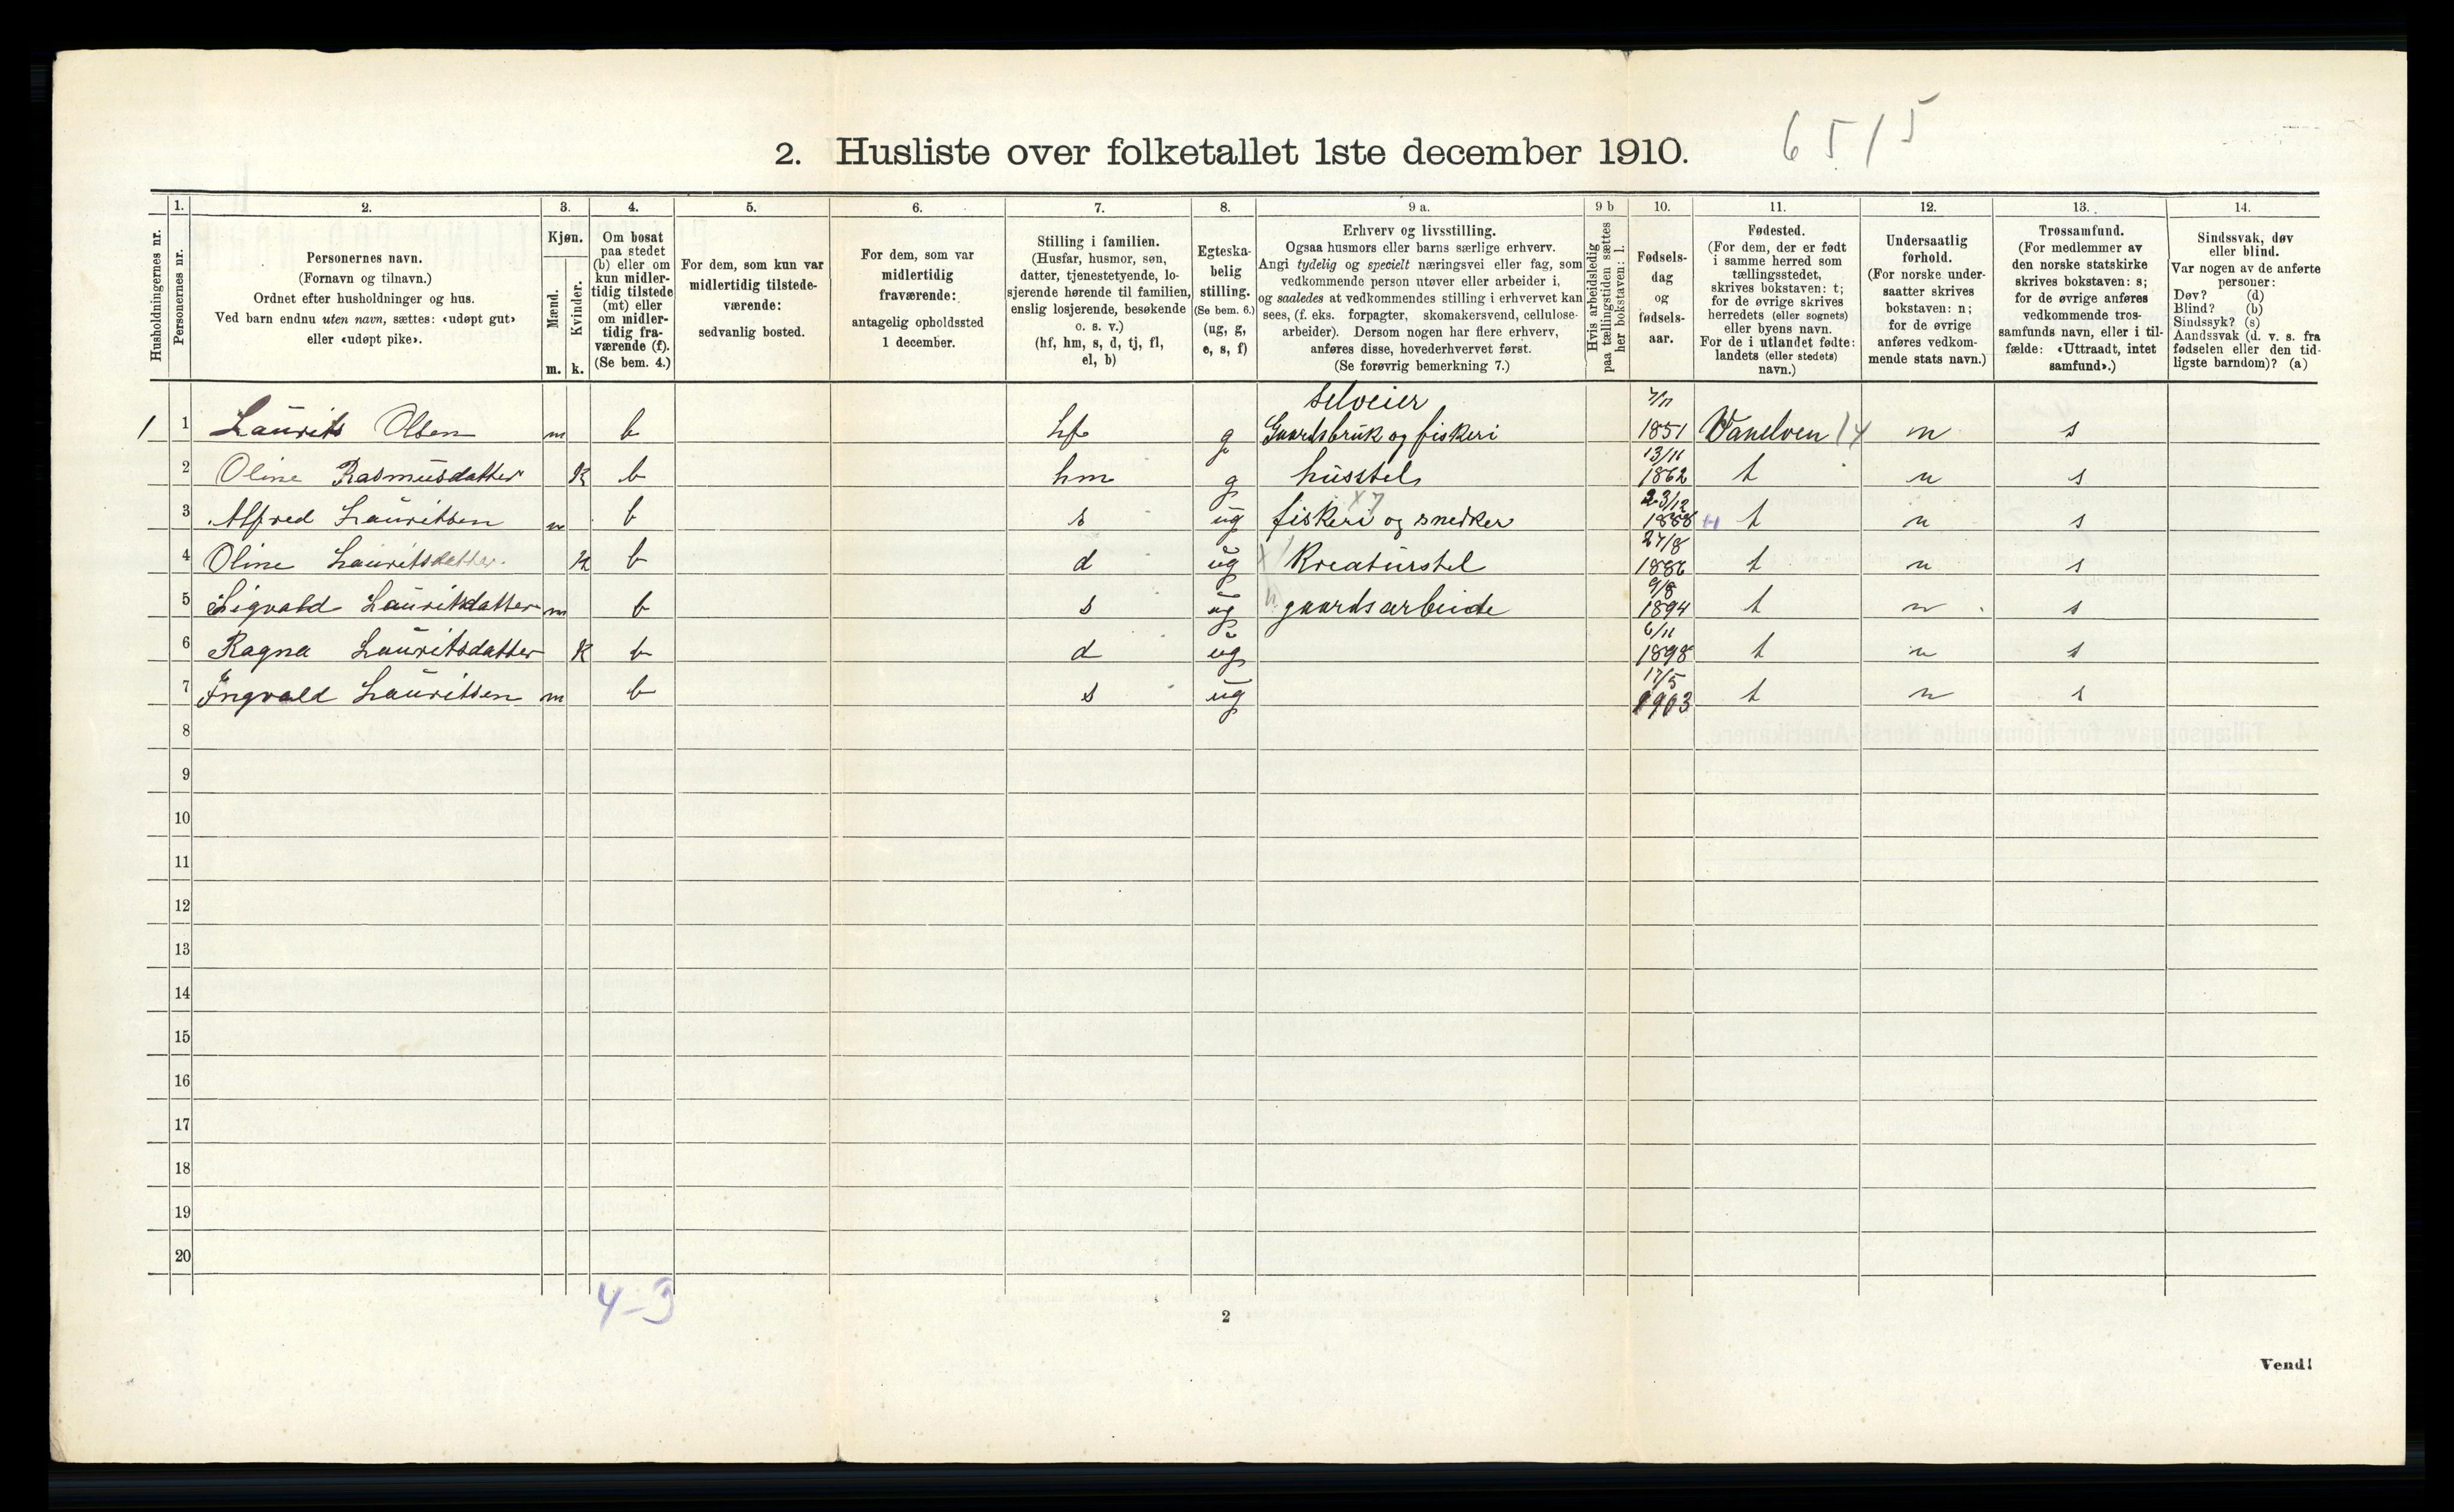 65/5
2. Husliste over folketallet 1ste december 1910.
Husholdningernes nr.
1.
Personernes nr.
2.
Personernes navn.
(Fornavn og tilnavn.)
Ordnet efter husholdninger og hus.
Ved barn endnu uten navn, sættes: «udøpt gut»
eller «udøpt pike».
3.
Kjøn.
Mænd.
Kvinder.
m. k.
4.
Om bosat
paa stedet
(b) eller om
kun midler-
tidig tilstede
(mt) eller
om midler-
tidig fra-
værende (f).
(Se bem. 4.)
5.
For dem, som kun var
midlertidig tilstede-
værende:
sedvanlig bosted.
6.
For dem, som var
midlertidig
fraværende:
antagelig opholdssted
1 december.
7.
Stilling i familien.
(Husfar, husmor, søn,
datter, tjenestetyende, lo-
sjerende hørende til familien,
enslig losjerende, besøkende
o. s. v.)
(hf, hm, s, d, tj, fl,
el, b)
8.
Egteska-
belig
stilling.
(Se bem. 6.)
(ug, g,
e, s, f)
9 a.
Erhverv og livsstilling.
Ogsaa husmors eller barns særlige erhverv.
Angi tydelig og specielt næringsvei eller fag, som
vedkommende person utøver eller arbeider i,
og saaledes at vedkommendes stilling i erhvervet kan
sees, (f. eks. forpagter, skomakersvend, cellulose-
arbeider). Dersom nogen har flere erhverv,
anføres disse, hovederhvervet først.
(Se forøvrig bemerkning 7.)
9 b
Hvis arbeidsledig
paa tællingstiden sættes
her bokstaven: l.
10.
Fødsels-
dag
og
fødsels-
aar.
11.
Fødested.
(For dem, der er født
i samme herred som
tællingsstedet,
skrives bokstaven: t;
for de øvrige skrives
herredets (eller sognets)
eller byens navn.
For de i utlandet fødte:
landets (eller stedets)
navn.)
12.
Undersaatlig
forhold.
(For norske under-
saatter skrives
bokstaven: n;
for de øvrige
anføres vedkom-
mende stats navn.)
13.
Trossamfund.
(For medlemmer av
den norske statskirke
skrives bokstaven: s;
for de øvrige anføres
vedkommende tros-
samfunds navn, eller i til-
fælde: «Uttraadt, intet
samfund».)
14.
Sindssvak, døv
eller blind.
Var nogen av de anførte
personer:
Døv? (d)
Blind? (b)
Sindssyk? (s)
Aandssvak (d. v. s. fra
fødselen eller den tid-
ligste barndom)? (a)
selveier
1 1 Laurits Olsen m b hf g Gaardsbruk og fiskeri 1851 Vanelven 14 n s
2 Oline Rasmusdatter K b hm g husstel 13/11 1862 t n s
3 Alfred Lauritsen m b s ug fiskeri og snedker 23/12 1888 t n s
4 Oline Lauritsdatter K b d ug Kreaturstel 27/8 1886 t n s
5 Sigvald Lauritsdatter m b s ug gaardsarbeide 9/8 1894 t n s
6 Ragna Lauritsdatter K b d ug 6/11 1898 t n s
7 Ingvald Lauritsen m b s ug 17/5 1903 t n s
8
9
10
11
12
13
14
15
16
17
18
19
20
4-3
2
Vend!